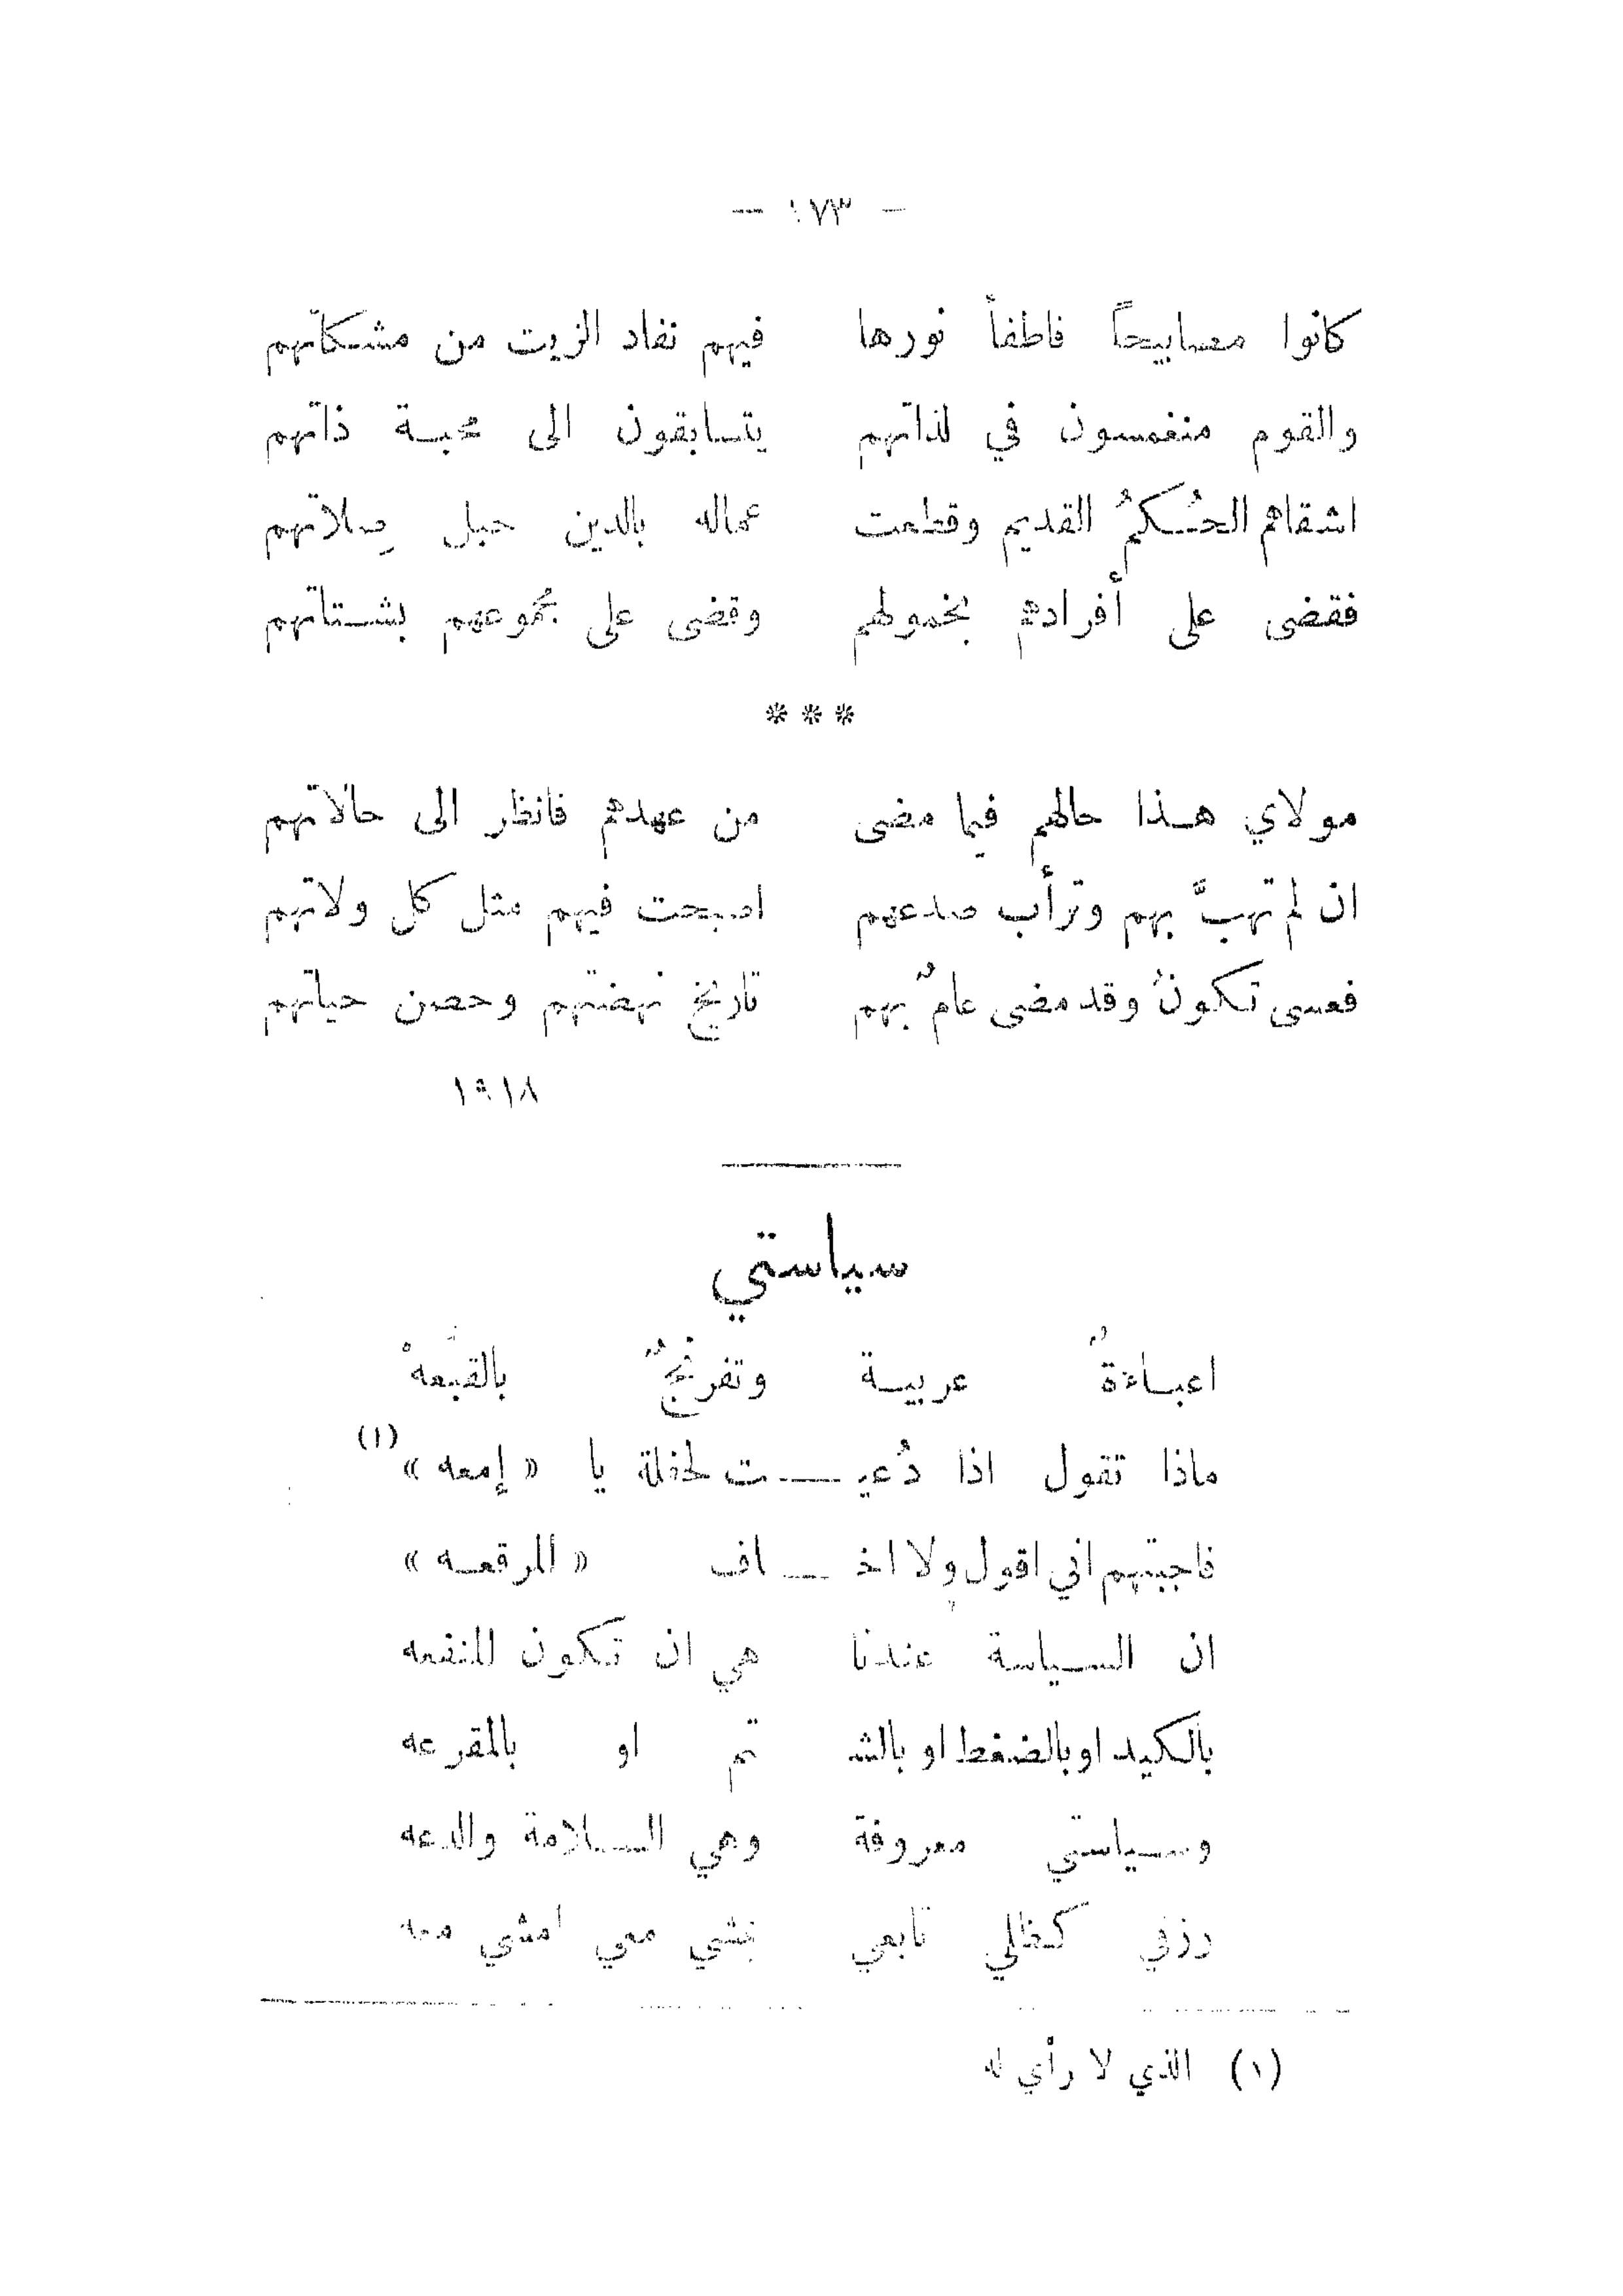 — ١٧٣ —
كانوا مصابيحاً فاطفأ نورها فيهم نفاد الزيت من مشكاتهم
والقوم منغمسون في لذاتهم يتسابقون الى محبـة ذاتهم
اشقاهم الحُـكمُ القديم وقطعت عماله بالدين حبل صِلاتهم
فقضى على أفرادهم بخمولهم وقضى على مجموعهم بشـتاتهم
***
مولاي هـذا حالهم فيما مضى من عهدهم فانظر الى حالاتهم
ان لم تهبَّ بهم وترأب صدعهم اصبحت فيهم مثل كل ولاتهم
فعسى تكونُ وقد مضى عامٌ بهم تاريخ نهضتهم وحصن حياتهم
١٩١٨
سياستي
اعبـاءةٌ عربيـة وتفرنجٌ بالقبّعهْ
ماذا تقول اذا دُعيـــت لحفلة يا « إمعه » (١)
فاجبتهم اني اقول ولا اخـــاف « المرقعـه »
ان السـياسة عندنا هي ان تكون المنفعه
بالكيد او بالضغط او بالشتم او بالمقرعه
وسـياستي معروفة وهي السـلامة والدعه
رزقي كـظلي تابعي يمشي معي امشي معه
(١) الذي لا رأي له